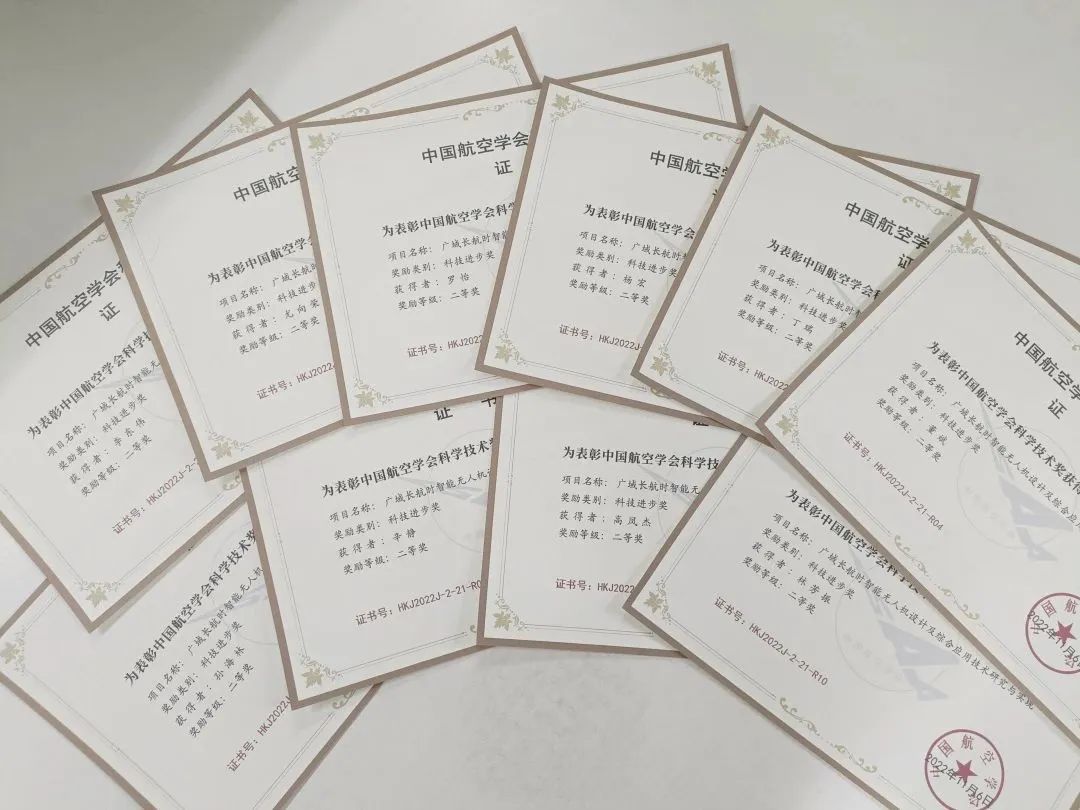 中国航空学会
证
为表彰中国航空学会科学技
项目名称：广域长航时智能无
奖励类别：科技进步奖
获得者：李东伟
奖励等级：二等奖
证书号：HKJ2022J-
中国航空
为表彰中国航空学
项目名称：广域长航时
奖励类别：科技进步
获得者：尤向荣
奖励等级：二等奖
证书号：HKJ2022J
中国航空学会
证
为表彰中国航空学会科学
项目名称：广域长航时智能
奖励类别：科技进步奖
获得者：罗怡
奖励等级：二等奖
证书号：HKJ2022
中国航空学
为表彰中国航空学会
项目名称：广域长航时智
奖励类别：科技进步奖
获得者：杨宏
奖励等级：二等奖
证书号：HKJ2022J-
中国航空学
证
为表彰中国航空学会科
项目名称：广域长航时
奖励类别：科技进步奖
获得者：丁瑞
奖励等级：二等奖
证书号：HKJ202
中国航空学
证
为表彰中国航空学会科学技术奖获得
项目名称：广域长航时智能无人机设计及综合应
奖励类别：科技进步奖
获得者：董斌
奖励等级：二等奖
证书号：HKJ2022J-2-21-R04
中国航
2022年11月6
为表彰中国航空学会科学技术奖
项目名称：广域长航时智能无人机
奖励类别：科技进步奖
获得者：孙海林
奖励等级：二等奖
证书号：HKJ2022J-2-21
证书
为表彰中国航空学会科学技术奖
项目名称：广域长航时智能无人机设
奖励类别：科技进步奖
获得者：辛静
奖励等级：二等奖
证书号：HKJ2022J-2-21-R0
为表彰中国航空学会科学技
项目名称：广域长航时智能无
奖励类别：科技进步奖
获得者：高凤杰
奖励等级：二等奖
证书号：HKJ2022J-2
为表彰中国航空学会科学技术
项目名称：广域长航时智能无人机设计及综合应用技术研究与实现
奖励类别：科技进步奖
获得者：林芳振
奖励等级：二等奖
证书号：HKJ2022J-2-21-R10
中国航空学会
2022年11月6日